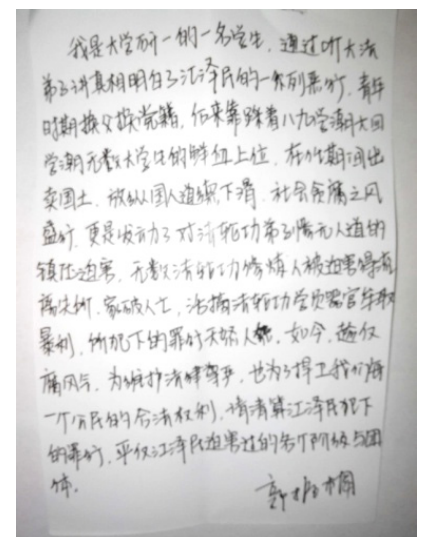 我是大学研一的一名学生，通过听大法
弟子讲真相明白了江泽民的一系列恶行，青年
时期换父换党籍，后来靠踩着八九学潮大四
学潮无数大学生的鲜血上位，在位期间出
卖国土，放纵国人道德下滑，社会贪腐之风
盛行，更是发动了对法轮功弟子惨无人道的
镇压迫害，无数法轮功修炼人被迫害得流
离失所，家破人亡，活摘法轮功学员器官牟取
暴利，所犯下的罪行天怒人怨，如今，
腐风气，为维护法律尊严，也为了捍卫我们每
一个公民的合法权利，请清算江泽民犯下
的罪行，平反江泽民迫害过的各个阶级与团
体。